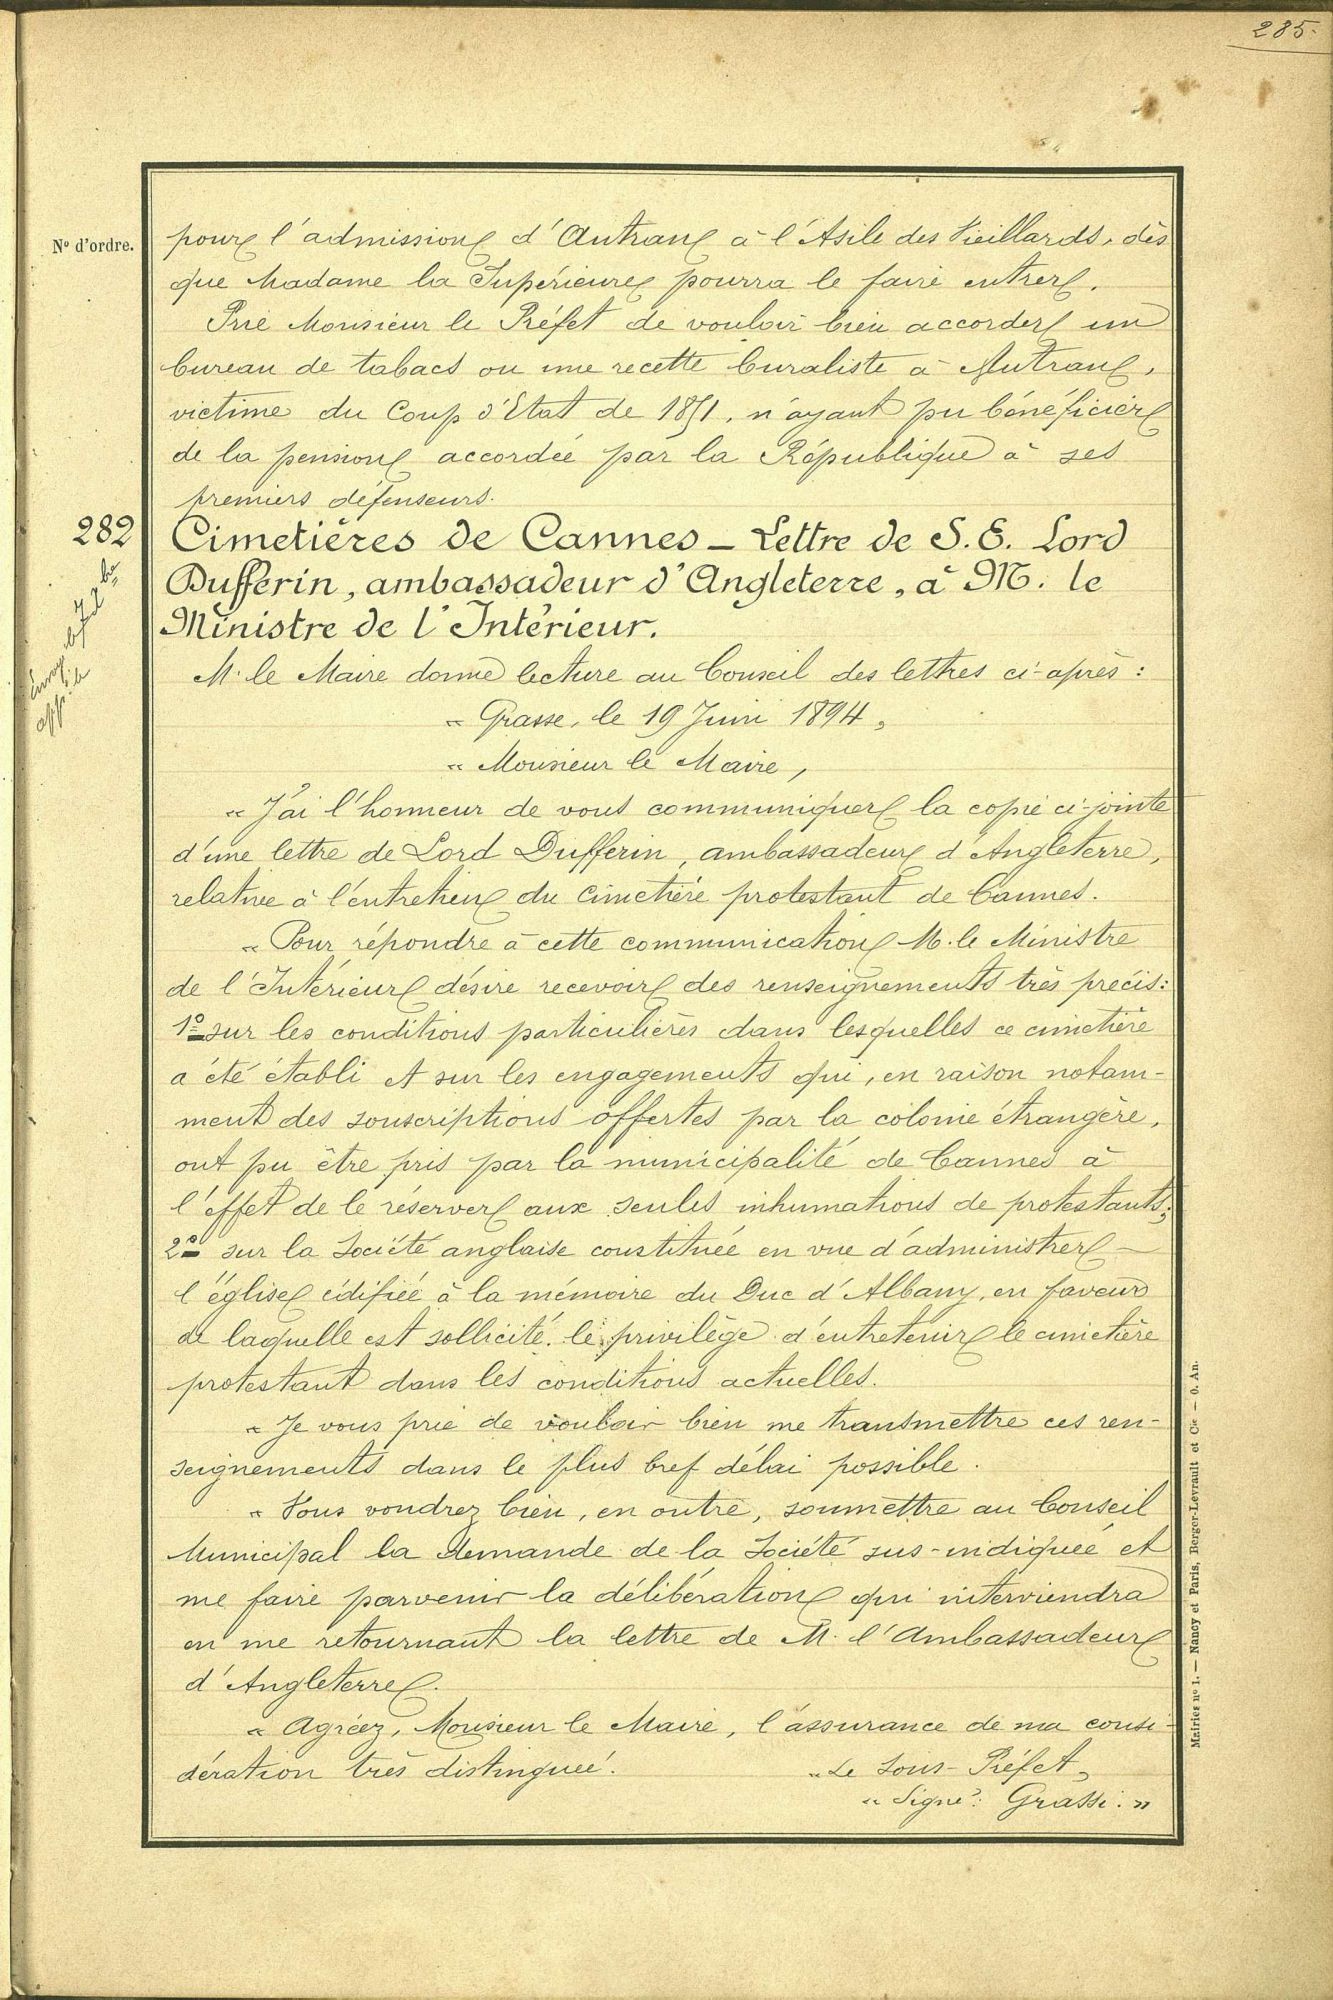 285.
N° d'ordre.
pour l'admission d'Autran à l'Asile des Vieillards, dès
que Madame la Supérieure pourra le faire entrer.
Prie Monsieur le Préfet de vouloir bien accorder un
bureau de tabacs ou une recette buraliste à Autran,
victime du Coup d'Etat de 1851, n'ayant pu bénéficier
de la pension accordée par la République à ses
premiers défenseurs.
282
Cimetières de Cannes _ Lettre de S. E. Lord
Dufferin, ambassadeur d'Angleterre, à M. le
Ministre de l'Intérieur.
M. le Maire donne lecture au Conseil des lettres ci-après :
" Grasse, le 19 Juin 1894,
" Monsieur le Maire,
" J'ai l'honneur de vous communiquer la copie ci-jointe
d'une lettre de Lord Dufferin, ambassadeur d'Angleterre,
relative à l'entretien du cimetière protestant de Cannes.
" Pour répondre à cette communication M. le Ministre
de l'Intérieur désire recevoir des renseignements très précis:
1° sur les conditions particulières dans lesquelles ce cimetière
a été établi et sur les engagements qui, en raison notam-
ment des souscriptions offertes par la colonie étrangère,
ont pu être pris par la municipalité de Cannes à
l'effet de le réserver aux seules inhumations de protestants;
2° sur la Société anglaise constituée en vue d'administrer
l'église édifiée à la mémoire du Duc d'Albany, en faveur
de laquelle est sollicité le privilège d'entretenir le cimetière
protestant dans les conditions actuelles.
" Je vous prie de vouloir bien me transmettre ces ren-
seignements dans le plus bref délai possible.
" Vous voudrez bien, en outre, soumettre au Conseil
Municipal la demande de la Société sus-indiquée et
me faire parvenir la délibération qui interviendra
en me retournant la lettre de M. l'Ambassadeur
d'Angleterre.
" Agréez, Monsieur le Maire, l'assurance de ma consi-
dération très distinguée.
" Le Sous-Préfet,
" Signé: Grassi. "
Mairies n° 1. — Nancy et Paris, Berger-Levrault et Cie — O. An.